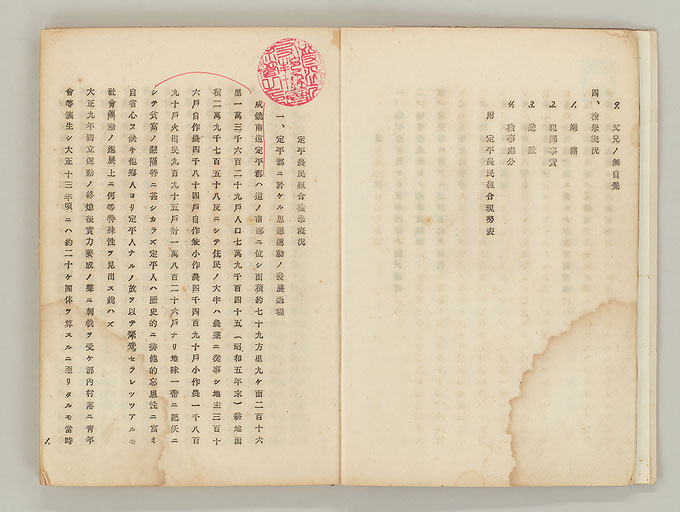 9. 父兄ノ無自覺
四、檢擧概況
1. 端緒
2. 犯罪事實
3. 送致
4. 檢事處分
附 定平農民組合現勢表
定平農民組合檢擧概況
一、定平郡ニ於ケル思想運動ノ發展過程
咸鏡南道定平郡ハ道ノ南部ニ位シ面積約七十九方里九ケ面二百十六
里一萬三千六百二十九戸人口七萬九千百四十五(昭和五年末)耕地面
積二萬九千七百五十八反ニシテ住民ノ大半ハ農業ニ從事シ地主三百十
六戸自作農四千八十四戸自作兼小作農四千四百九十戸小作農一千八百
九十戸火田民九百九十五戸計一萬八百二十六戸ナリ地味一帶ニ肥沃ニ
シテ貧富ノ懸隔特ニ甚シカラズ定平人ハ歷史的ニ排他的忘恩性ニ富ミ
自省心ヲ缺キ他鄕人ヨリ定平人ナルノ故ヲ以テ セラレツツアルモ
社會運動ノ進展上ニ何等特殊性ヲ見出ス能ハズ
大正九年獨立運動ノ終熄後實力養成ノ聲ニ刺戟ヲ受ケ郡內村落ニ靑年
會等簇生シ大正十三年頃ニハ約二十ケ團体ヲ算スルニ至リタルモ當時
1.